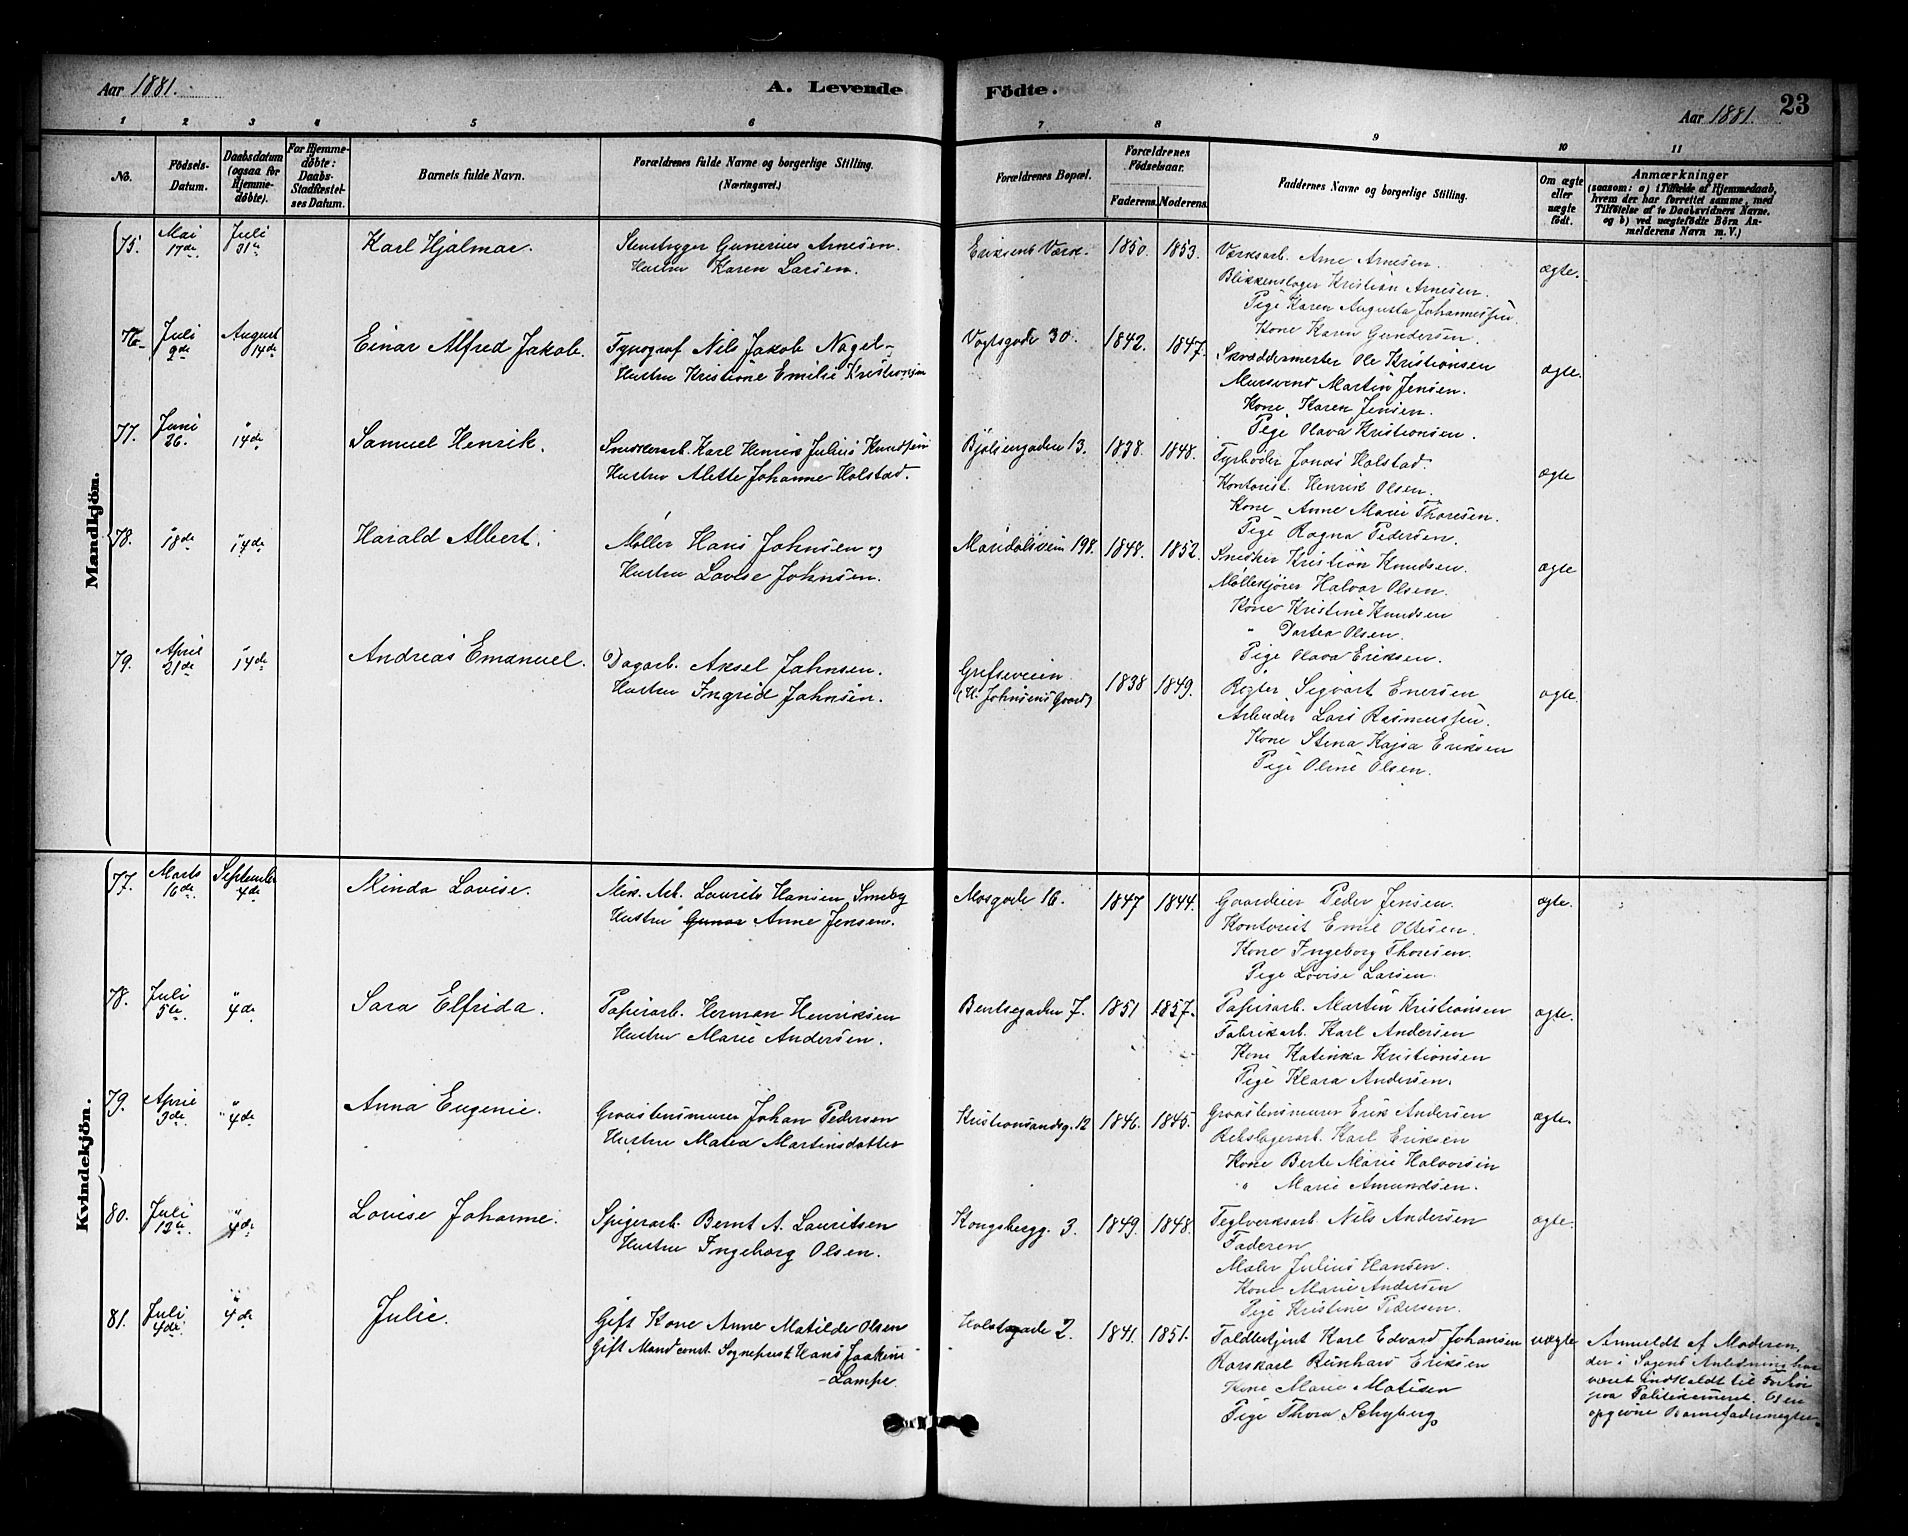 Aar 1881.
A. Levende Födte.
Aar 1881.
23
1 2 3 4 5 6 7 8 9 10 11
No.
Födsels-Datum.
Daabsdatum (ogsaa for Hjemmedöbte).
For Hjemmedöbte: Daabs-Stadfæstelses Datum.
Barnets fulde Navn.
Forældrenes fulde Navne og borgerlige Stilling.
(Næringsvei.)
Forældrenes Bopæl.
Forældrenes Födselsaar.
Faderens. Moderens.
Faddernes Navne og borgerlige Stilling.
Om ægte eller uægte födt.
Anmærkninger
(saasom: a) i Tilfælde af Hjemmedaab, hvem der har forrettet samme, med Tilföielse af to Daabsvidners Navne, og b) ved uægtefödte Börn Anmelderens Navn m. V.)
Mandkjön.
75. Mai 17de Juli 31te Karl Hjalmar. Stenhygger Gunerius Arnesen. Eriksens Værk. 1850. 1853. Værksarb. Arne Arnesen. ægte.
Hustru Karen Larsen. Blikkenslager Kristian Arnesen.
Pige Karen Augusta Johannessen.
Kone Karen Gundersen.
76. Juli 9de August 14de Einar Alfred Jakob. Typograf Nils Jakob Nagel Vogtsgade 30. 1842. 1847. Skræddermester Ole Kristiansen ægte.
Hustru Kristiane Emilie Kristiansen Mursvend Martin Jensen.
Kone Karen Jensen.
Pige Olava Kristiansen.
77. Juni 26. " 14de Samuel Henrik. Snedkerarb. Karl Henrik Julius Knudsen Bjølsengaden 13. 1838. 1848. Fyrbøder Jonas Holstad. ægte
Hustru Alette Johanne Holstad. Kontorist Henrik Olsen.
Kone Anne Marie Thoresen.
Pige Ragna Pedersen.
78. " 18de " 14de Harald Albert. Møller Hans Johnsen og Maridalsveien 198. 1848. 1852. Snedker Kristian Knudsen. ægte
Hustru Lovise Johnsen. Møllekjører Halvor Olsen.
Kone Kristine Knudsen
" Dortea Olsen.
Pige Olava Eriksen.
79. April 21de " 14de Andreas Emanuel. Dagarb. Aksel Johnsen. Grefseveien 1838 1849. Røgter Sigvart Enersen ægte
Hustru Ingrid Johnsen. (H. Johnsens Gaard) Arbeider Lars Rasmussen.
Kone Stina Kajsa Eriksen
Pige Oline Olsen.
Kvindekjön.
77. Marts 16de September 4de Minda Lovise. Mek. Arb. Laurits Hansen Smeby Mosgade 16. 1847 1844. Gaardeier Peder Jensen. ægte.
Hustru Gunar Anne Jensen. Kontorist Emil Ottesen.
Kone Ingeborg Thoresen.
Pige Lovise Larsen.
78. Juli 5te " 4de Sara Elfrida. Papirarb. Herman Henriksen Bentsegaden 7. 1851 1857. Papirarb. Martin Kristiansen ægte.
Hustru Marie Andersen. Fabrikarb. Karl Andersen
Kone Katinka Kristiansen
Pige Klara Andersen.
79. April 3de " 4de Anna Eugenie. Graastensmurer Johan Pedersen Kristiansandsg. 12 1846. 1845. Graastensmurer Erik Andersen ægte.
Hustru Matea Martinsdatter Rebslagerarb. Karl Eriksen
Kone Berte Marie Halvorsen
" Marie Amundsen.
80. Juli 12te " 4de Lovise Johanne. Spigerarb. Bernt A. Lauritsen Kongsbergg. 3. 1849. 1848. Teglverksarb. Nils Andersen ægte.
Hustru Ingeborg Olsen. Faderen
Maler Julius Hansen.
Kone Marie Andersen
Pige Kristine Pedersen.
81. Juli 4de " 4de Julie. Gift Kone Anne Matilde Olsen Holstsgade 2. 1841. 1851. Toldbetjent Karl Edvard Johansen uægte Anmeldt af Moderen,
Gift Mand const. Sogneprest Hans Joakim Lampe. Karskarl Reinhard Eriksen der i Sagens Anledning har
Kone Marie Matisen været indkaldt til Forhør
Pige Thora Schyberg paa Politikameret.
opgivne Barnefader negter